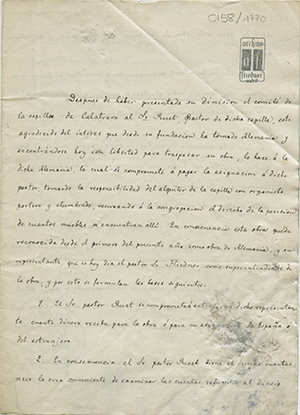 0158/1770
archivo
Fliedner
Despues de haber presentado su dimision el comité de
la capilla de Calatrava al Sr Ruet, Pastor de dicha capilla, este
agradecido del interés que desde su fundacion ha tomado Alemania y
encontrándose hoy en libertad para traspasar su obra, lo hace á la
dicha Alemania, la cual se compromete á pagar la asignacion á dicho
pastor, tomando la responsibilidad del alquiler de la capilla con organista
portero y alumbrado, reservando á la congregacion el derecho de la posesion
de cuantos muebles se encuentran allí. En consecuencia esta obra queda
reconocida desde el primero del presente año como obra de Alemania, y su
representante, que es hoy dia el pastor Sr. Fliedner, como superintendente de
la obra, y por esto se formulan las bases siguientes:
1. El Sr. pastor Ruet se compromete á entregar á dicho representan-
te cuanto dinero reciba para la obra ó para su asignacion de España ó
del estranjero.
2. En consecuencia el Sr. pastor Ruet tiene el cuantas
veces lo crea conveniente de examinar las cuentas referentes al dinero